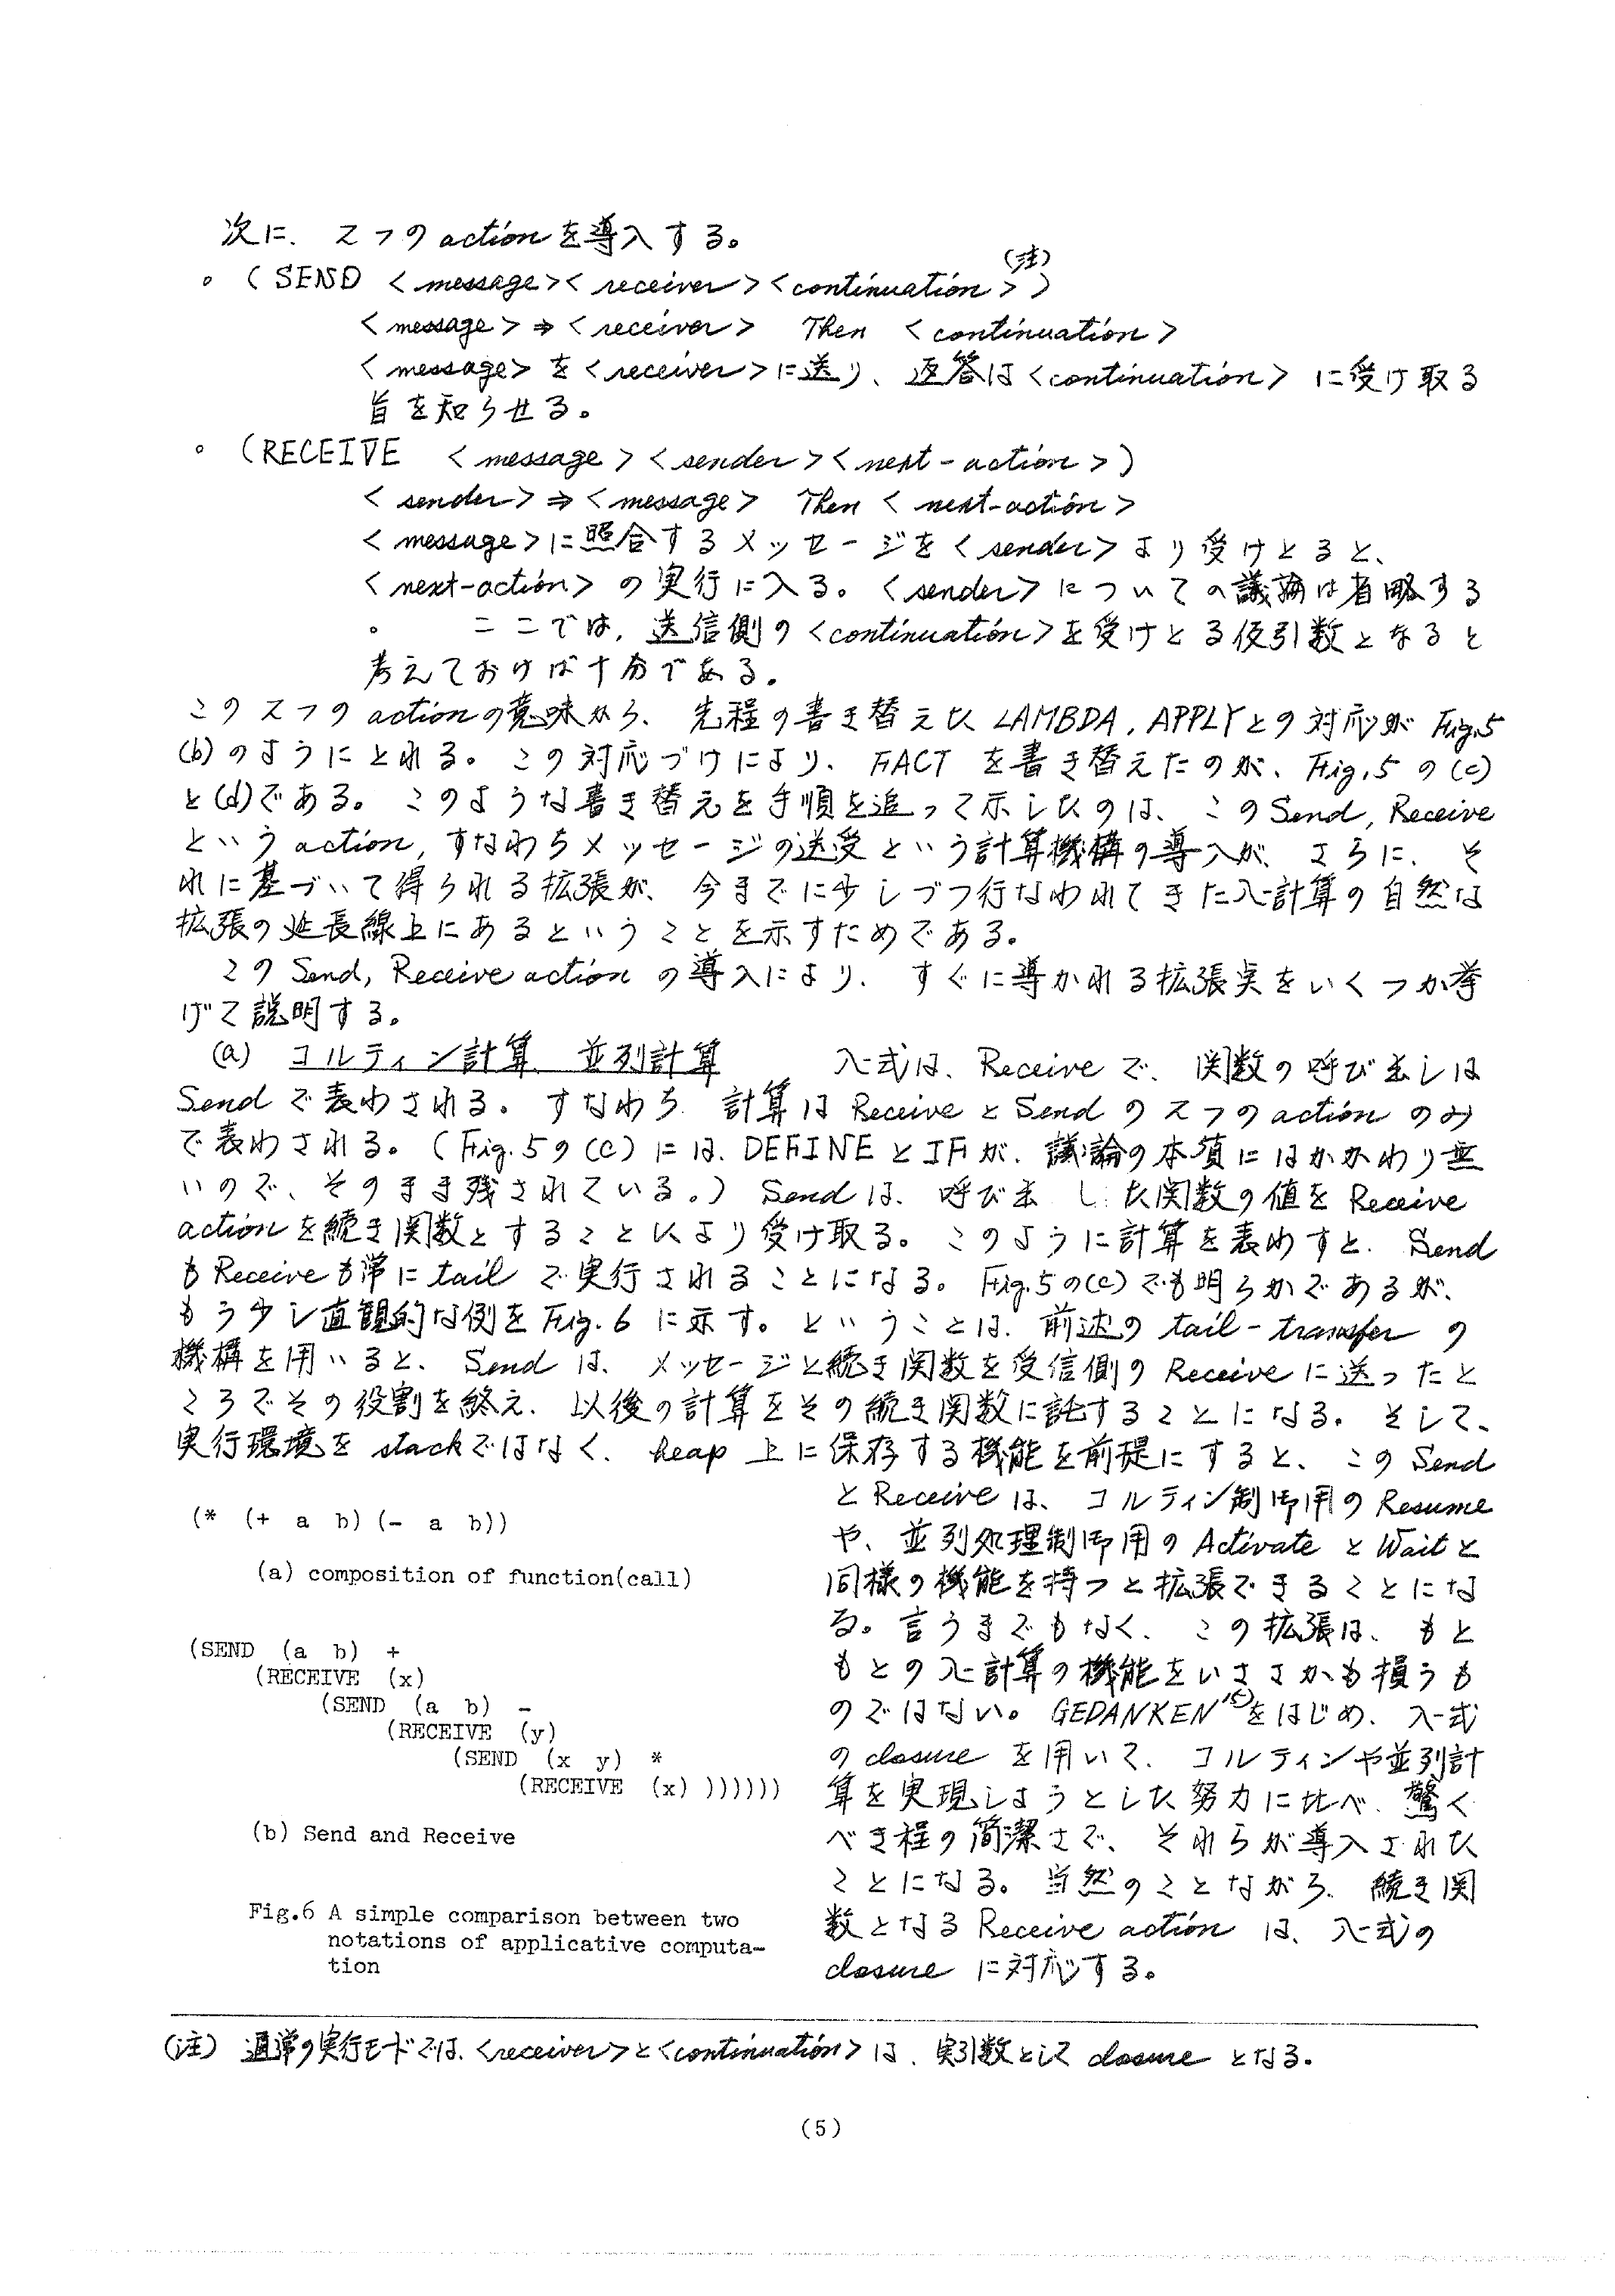 次に、2つの action を導入する。
(注)
。(SEND <message><receiver><continuation>)
<message> ⇒ <receiver> Then <continuation>
<message> を <receiver> に送り、返答は <continuation> に受け取る
旨を知らせる。
。(RECEIVE <message><sender><next-action>)
<sender> ⇒ <message> Then <next-action>
<message> に照合するメッセージを <sender> より受けとると、
<next-action> の実行に入る。<sender> についての議論は省略する
。 ここでは、送信側の <continuation> を受けとる仮引数となると
考えておけば十分である。
この2つの action の意味から、先程の書き替えた LAMBDA, APPLY との対応が Fig.5
(b) のようにとれる。この対応づけにより、FACT を書き替えたのが、Fig.5 の (c)
と (d) である。このような書き替えを手順を追って示したのは、この Send, Receive
という action, すなわちメッセージの送受という計算機構の導入が、さらに、そ
れに基づいて得られる拡張が、今までに少しづつ行なわれてきた λ-計算の自然な
拡張の延長線上にあるということを示すためである。
この Send, Receive action の導入により、すぐに導かれる拡張実をいくつか挙
げて説明する。
(a) コルティン計算、並列計算 λ-式は、Receive で、関数の呼び出しは
Send で表わされる。すなわち、計算は Receive と Send の2つの action のみ
で表わされる。(Fig.5 の (c) には、DEFINE と IF が、議論の本項にはかかわり無
いので、そのまま残されている。) Send は、呼び出した関数の値を Receive
action を続き関数とすることにより受け取る。このように計算を表わすと、Send
も Receive も常に tail で実行されることになる。Fig.5 の (c) でも明らかであるが、
もう少し直観的な例を Fig.6 に示す。ということは、前述の tail-transfer の
機構を用いると、Send は、メッセージと続き関数を受信側の Receive に送ったと
ころでその役割を終え、以後の計算をその続き関数に託することになる。そして、
実行環境を stack ではなく、heap 上に保存する機能を前提にすると、この Send
と Receive は、コルティン制御用の Resume
や、並列処理制御用の Activate と Wait と
同様の機能を持つと拡張できることにな
る。言うまでもなく、この拡張は、もと
もとの λ-計算の機能をいささかも損うも
のではない。GEDANKEN をはじめ、λ-式
の closure を用いて、コルティンや並列計
算を実現しようとした努力に比べ、驚く
べき程の簡潔さで、それらが導入された
ことになる。当然のことながら、続き関
数となる Receive action は、λ-式の
closure に対応する。
(* (+ a b) (- a b))
(a) composition of function(call)
(SEND (a b) +
(RECEIVE (x)
(SEND (a b) -
(RECEIVE (y)
(SEND (x y) *
(RECEIVE (x) ))))))
(b) Send and Receive
Fig.6 A simple comparison between two
notations of applicative computa-
tion
(注) 通常の実行モードでは、<receiver> と <continuation> は、実引数として closure となる。
(5)